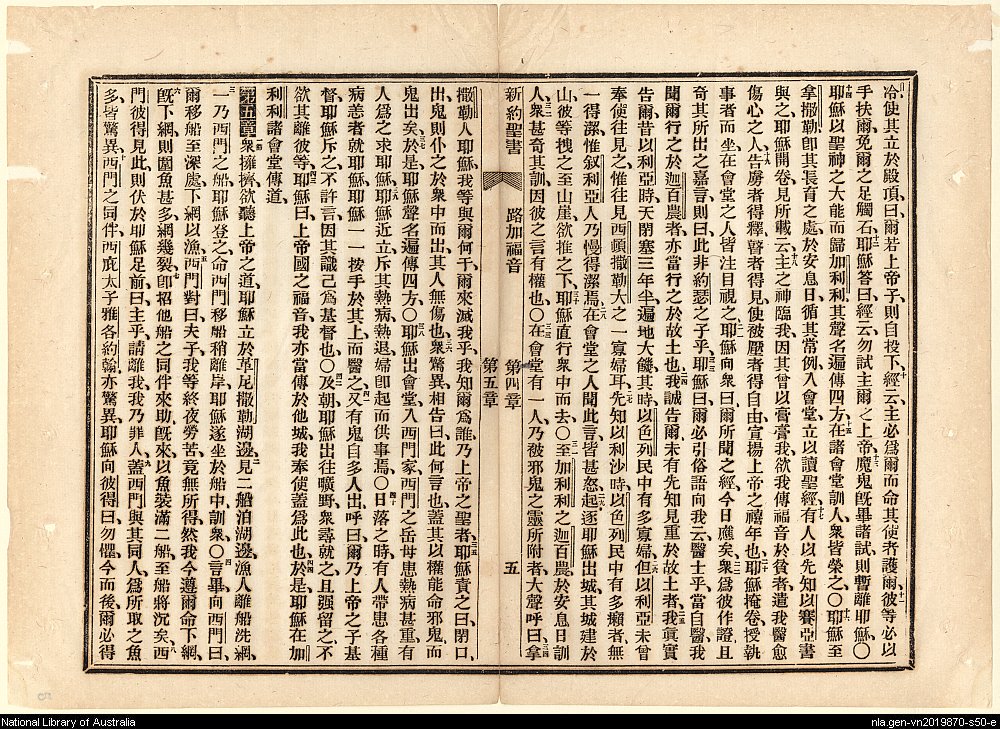 冷使其立於殿頂曰爾若上帝子則自投下經云主必爲爾而命其使者護爾彼等必以
手扶爾免爾之足觸石耶穌答曰經云勿試主爾之上帝魔鬼旣畢諸試則暫離耶穌〇
耶穌以聖神之大能而歸加利利其聲名遍傳四方在諸會堂訓人衆皆榮之〇耶穌至
拿撒勒卽其長育之處於安息日循其常例入會堂立以讀聖經有人以先知以賽亞書
與之耶穌開卷見所載云主之神臨我因其曾以膏膏我欲我傳福音於貧者遣我醫愈
傷心之人告虜者得釋瞽者得見使被壓者得自由宣揚上帝之禧年也耶穌掩卷授執
事者而坐在會堂之人皆注目視之耶穌向衆曰爾所聞之經今日應矣衆爲彼作證且
奇其所出之嘉言則曰此非約瑟之子乎耶穌曰爾必引俗語向我云醫士乎當自醫我
聞爾行之於迦百農者亦當行之於故土也我誠告爾未有先知見重於故土者我眞實
告爾昔以利亞時天閉塞三年半遍地大饑其時以色列民中有多寡婦但以利亞未曾
奉使往見之惟往見西頓撒勒大之一寡婦耳先知以利沙時以色列民中有多癩者無
一得潔惟叙利亞人乃慢得潔焉在會堂之人聞此言皆甚怒起逐耶穌出城其城建於
山彼等拽之至山崖欲推之下耶穌直行衆中而去〇至加利利之迦百農於安息日訓
人衆甚奇其訓因彼之言有權也〇在會堂有一人乃被邪鬼之靈所附者大聲呼曰拿
新約聖書 路加福音 第四章 第五章 五
撒勒人耶穌我等與爾何干爾來滅我乎我知爾爲誰乃上帝之聖者耶穌責之曰閉口
出鬼則仆之於衆中而出其人無傷也衆驚異相告曰此何言也蓋其以權能命邪鬼而
鬼出矣於是耶穌聲名遍傳四方〇耶穌出會堂入西門家西門之岳母患熱病甚重有
人爲之求耶穌耶穌近立斥其熱病熱退婦卽起而供事焉〇日落之時有人帶患各種
病恙者就耶穌耶穌一一按手於其上而醫之又有鬼自多人出呼曰爾乃上帝之子基
督耶穌斥之不許言因其識己爲基督也〇及朝耶穌出往曠野衆尋就之且强留之不
欲其離彼等耶穌曰上帝國之福音我亦當傳於他城我奉使蓋爲此也於是耶穌在加
利利諸會堂傳道
第五章 衆擁擠欲聽上帝之道耶穌立於革尼撒勒湖邊見二船泊湖邊漁人離船洗網
一乃西門之船耶穌登之命西門移船稍離岸耶穌遂坐於船中訓衆〇言畢向西門曰
爾移船至深處下網以漁西門對曰夫子我等終夜勞苦竟無所得然我今遵爾命下網
旣下網則圍魚甚多網幾裂卽招他船之同伴來助旣來以魚裝滿二船至船將沉矣西
門彼得見此則伏於耶穌足前曰主乎請離我我乃罪人蓋西門與其同人爲所取之魚
多皆驚異西門之同伴西庇太子雅各約翰亦驚異耶穌向彼得曰勿懼今而後爾必得
National Library of Australia
nla.gen-vn2019870-s50-e